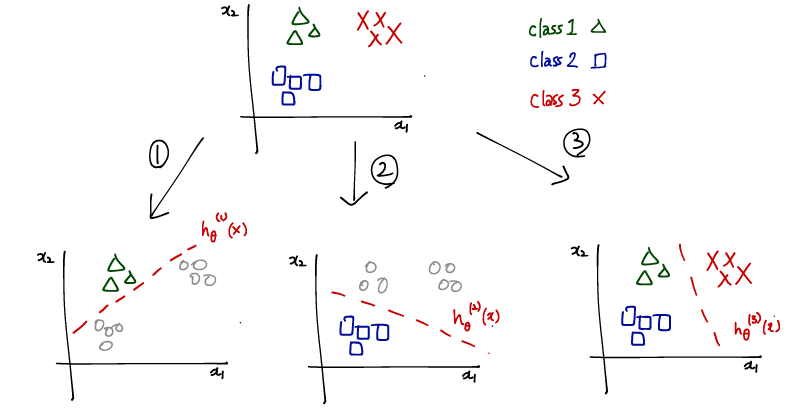 x₂
x₁
class 1 △
class 2 □
class 3 ×
①
②
③
x₂
h_θ^(1)(x)
x₁
x₂
h_θ^(2)(x)
x₁
x₂
h_θ^(3)(x)
x₁